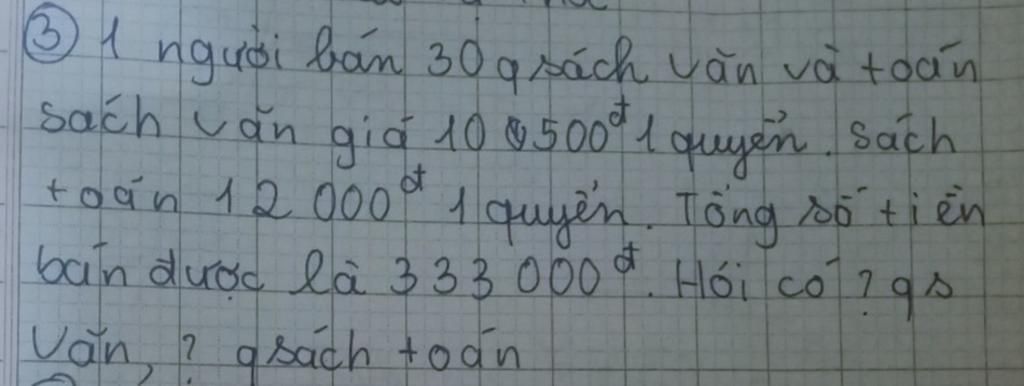 ③ 1 người bán 30 q sách văn và toán
sách văn giá 10 500đ 1 quyển. Sách
toán 12 000đ 1 quyển. Tổng số tiền
bán được là 333 000đ. Hỏi có ? qs
Văn, ? q sách toán